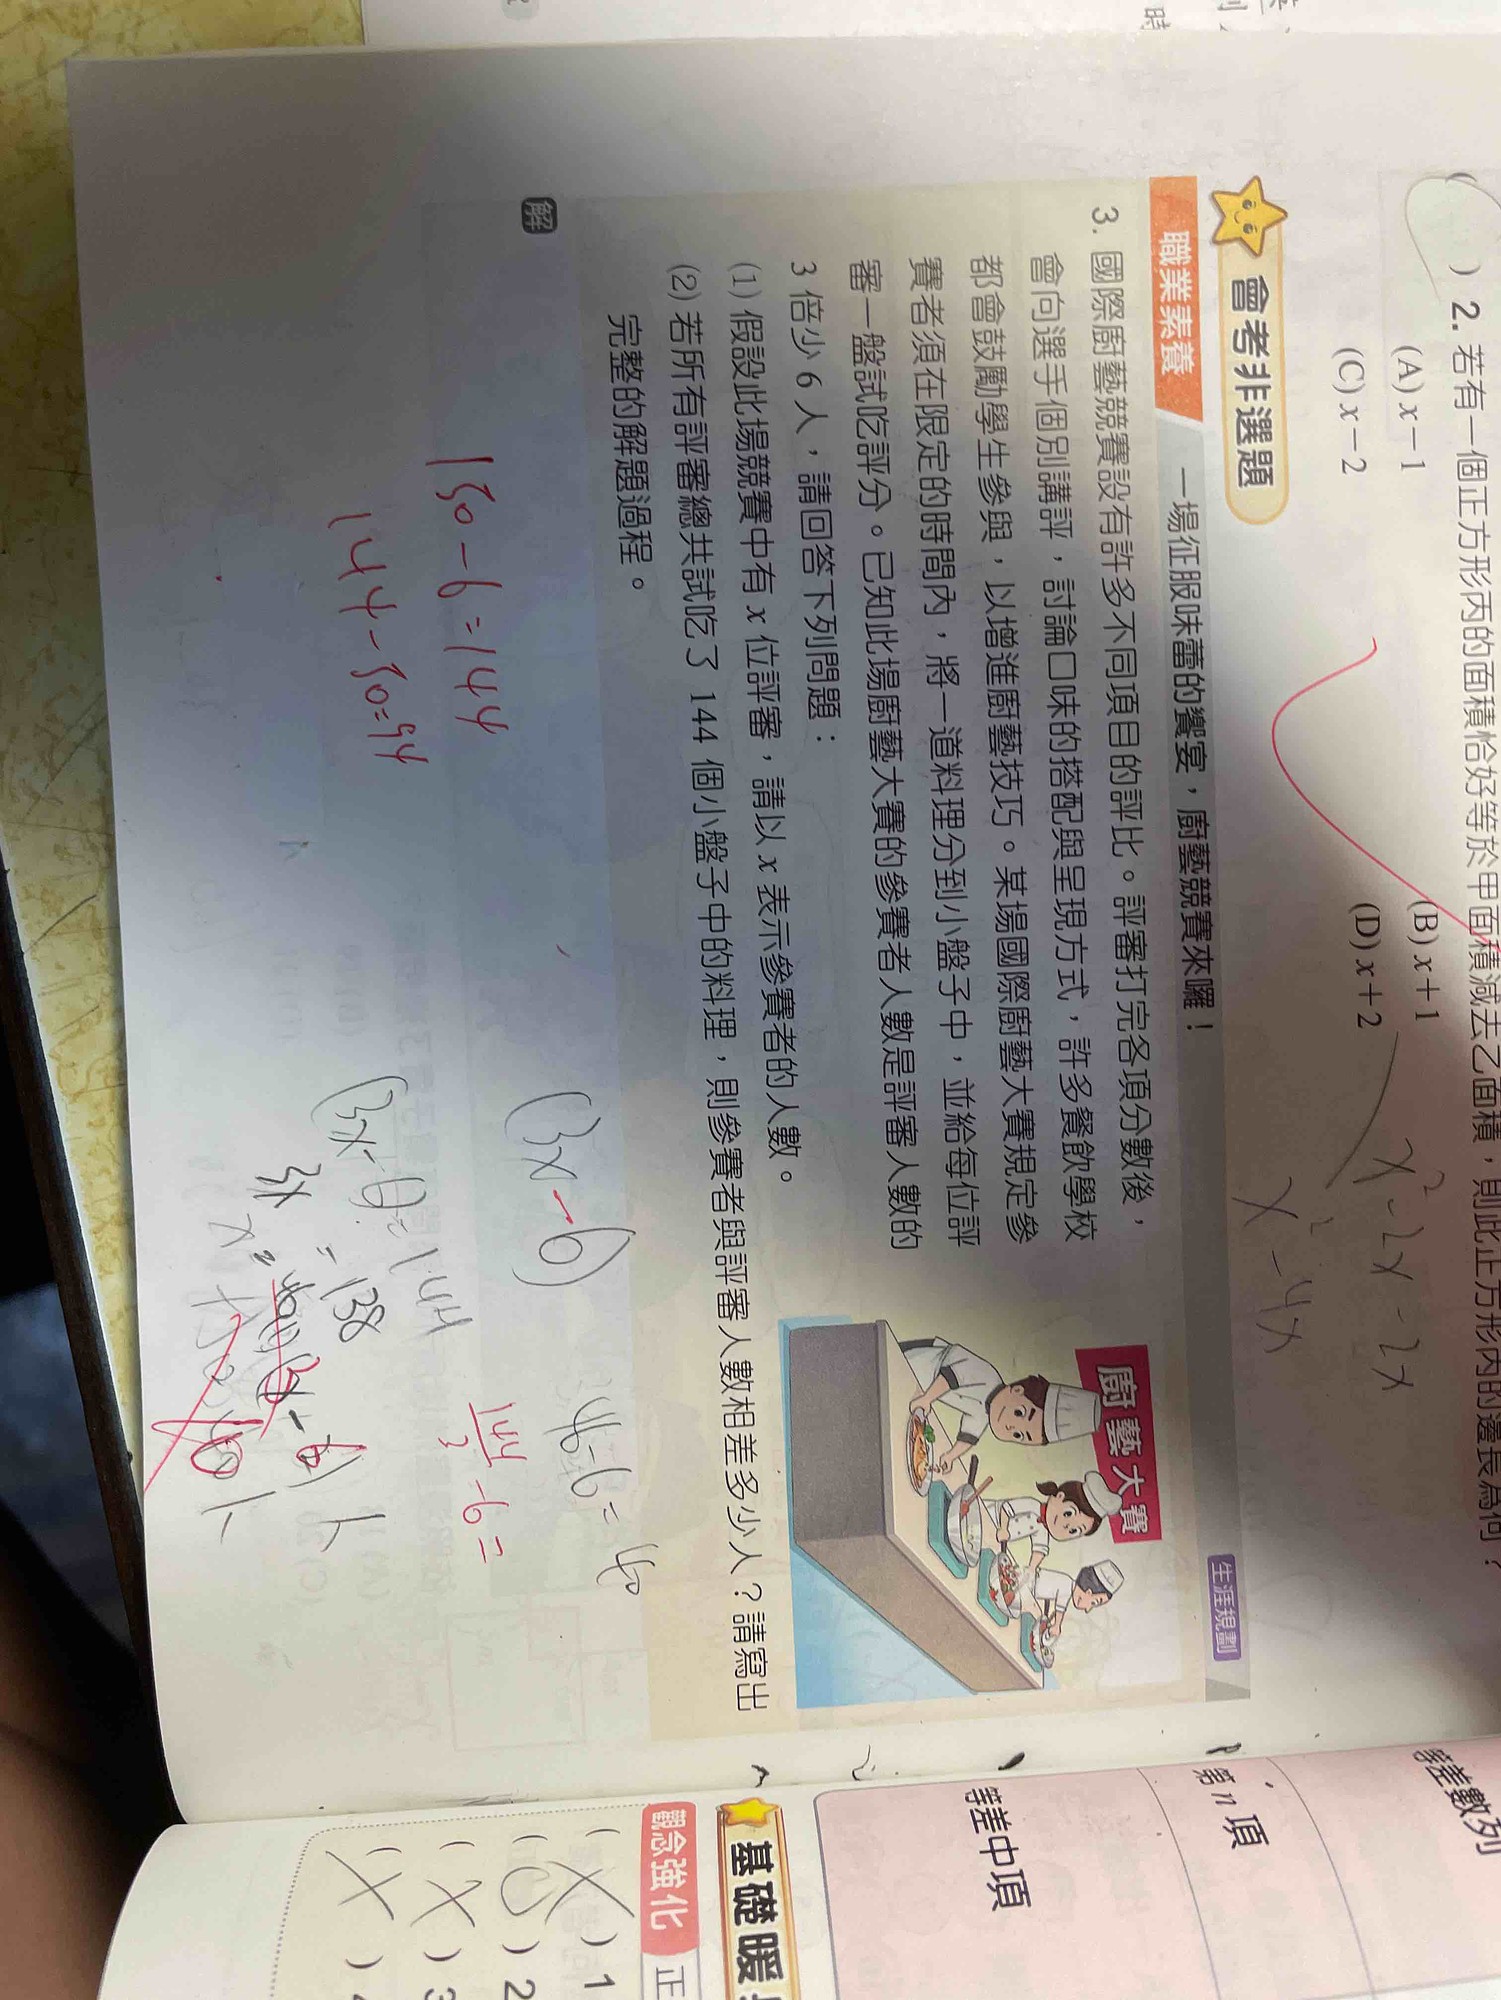 2. 若有一個正方形丙的面積恰好等於甲面積減去乙面積，則此正方形丙的邊長為何？
(A) x－1
(B) x＋1
(C) x－2
(D) x＋2
x²-2x-2x
x²-4x
會考非選題
職業素養
一場征服味蕾的饗宴，廚藝競賽來囉！
生涯規劃
3. 國際廚藝競賽設有許多不同項目的評比。評審打完各項分數後，
會向選手個別講評，討論口味的搭配與呈現方式，許多餐飲學校
都會鼓勵學生參與，以增進廚藝技巧。某場國際廚藝大賽規定參
賽者須在限定的時間內，將一道料理分到小盤子中，並給每位評
審一盤試吃評分。已知此場廚藝大賽的參賽者人數是評審人數的
3 倍少 6 人，請回答下列問題：
廚藝大賽
(1) 假設此場競賽中有 x 位評審，請以 x 表示參賽者的人數。
(2) 若所有評審總共試吃了 144 個小盤子中的料理，則參賽者與評審人數相差多少人？請寫出
完整的解題過程。
解
(3x-6)
46-6=40
150-6=144
144-50=94
144/3-6=
3x
=138
等差數列
第 n 項
等差中項
基礎暖
觀念強化
正
(X) 1
(O) 2
(X) 3
(X)